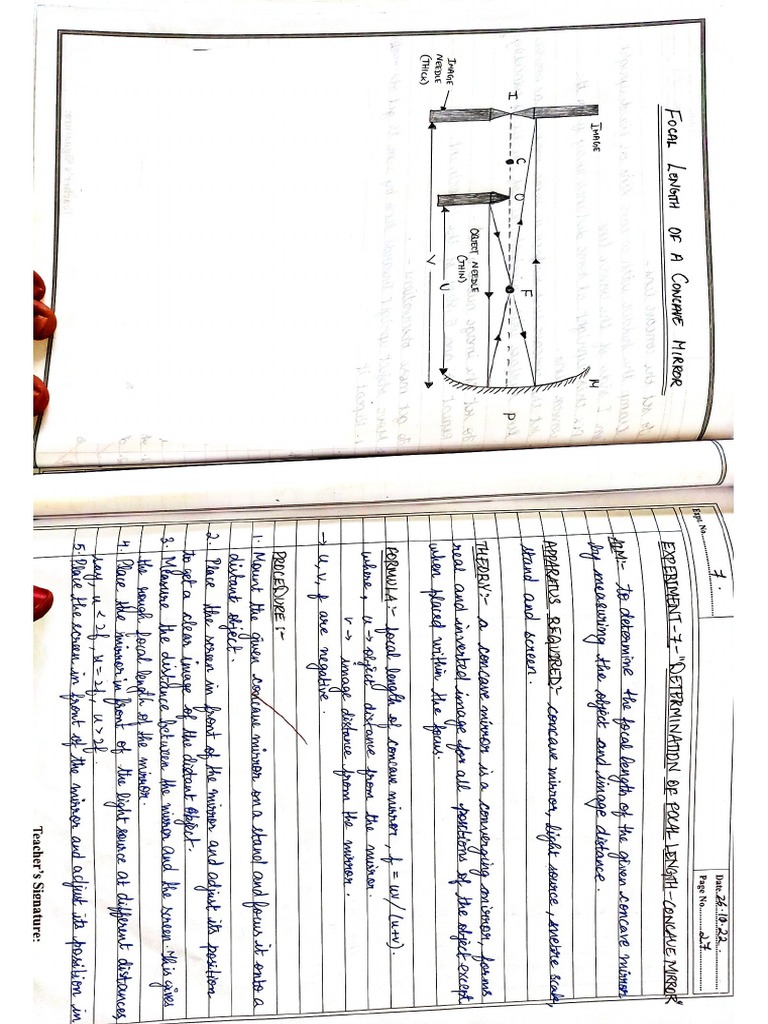 FOCAL LENGTH OF A CONCAVE MIRROR
IMAGE
M
I
C
O
F
P
IMAGE
NEEDLE
(THICK)
OBJECT NEEDLE
(THIN)
U
V
Expt. No. 7.
Date 26.10.22
Page No. 27
EXPERIMENT-7-"DETERMINATION OF FOCAL LENGTH-CONCAVE MIRROR"
AIM:- To determine the focal length of the given concave mirror
by measuring the object and image distance.
APPARATUS REQUIRED:- concave mirror, light source, metre scale,
stand and screen.
THEORY:- a concave mirror is a converging mirror, forms
real and inverted image for all positions of the object except
when placed within the focus.
FORMULA:- focal length of concave mirror, f = uv/(u+v).
where, u→ object distance from the mirror.
v→ image distance from the mirror.
→ u, v, f are negative.
PROCEDURE:-
1. Mount the given concave mirror on a stand and focus it onto a
distant object.
2. Place the screen in front of the mirror and adjust its position
to get a clear image of the distant object.
3. Measure the distance between the mirror and the screen. This gives
the rough focal length of the mirror.
4. Place the mirror in front of the light source at different distances
say, u < 2f, u = 2f, u > 2f.
5. Place the screen in front of the mirror and adjust its position in
Teacher's Signature: